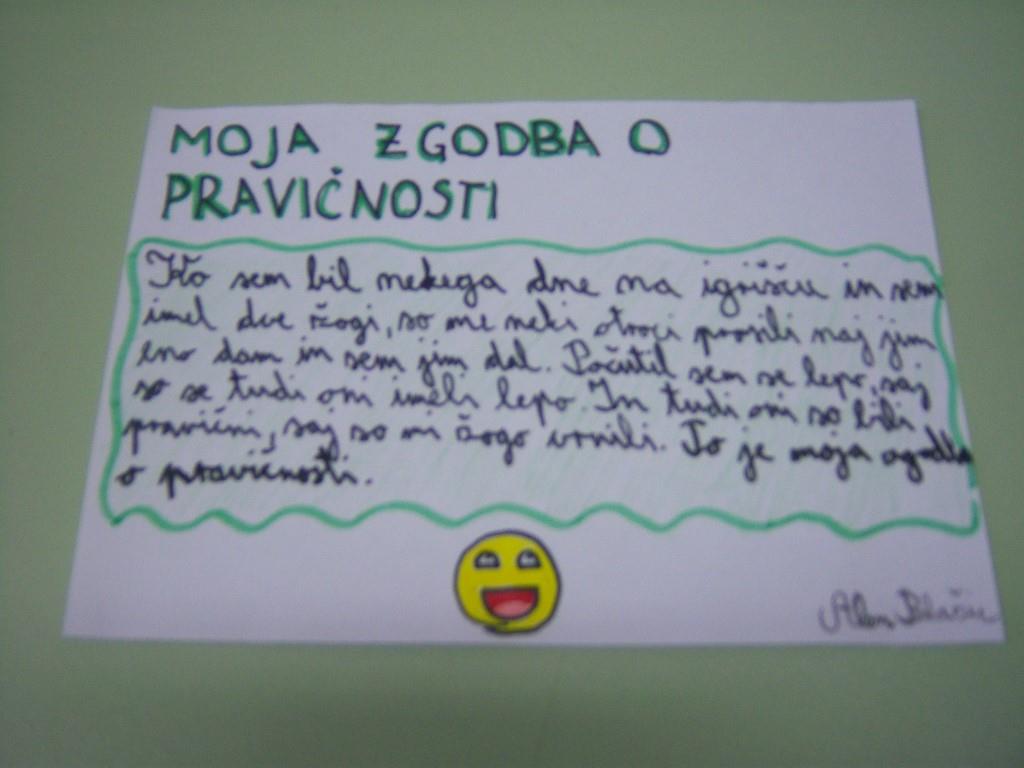 MOJA ZGODBA O
PRAVIČNOSTI
Ko sem bil nekega dne na igrišču in sem
imel dve žogi, so me neki otroci prosili naj jim
eno dam in sem jim dal. Počutil sem se lepo, saj
so se tudi oni imeli lepo. In tudi oni so bili
pravični, saj so mi žogo vrnili. To je moja zgodba
o pravičnosti.
Alen